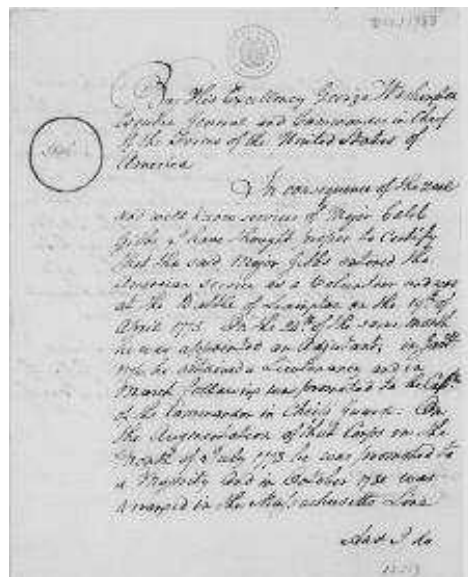 By His Excellency George Washington
Esquire General and Commander in Chief
of the Forces of the United States of
America
Seal
In consequence of the zeal
and well known services of Major Caleb
Gibbs I have thought proper to certify
that the said Major Gibbs entered the
American service as a Volunteer and was
at the Battle of Lexington on the 19th of
April 1775 On the 24th of the same month
he was appointed an Adjutant, in Jany
1776 he obtained a Lieutenancy and in
March following was promoted to the Capt
of the Commander in Chiefs Guard. On
the Augmentation of that Corps in the
Month of July 1778 he was promoted to
a Majority and in October 1780 was
arranged in the Massachusetts Line
And I do